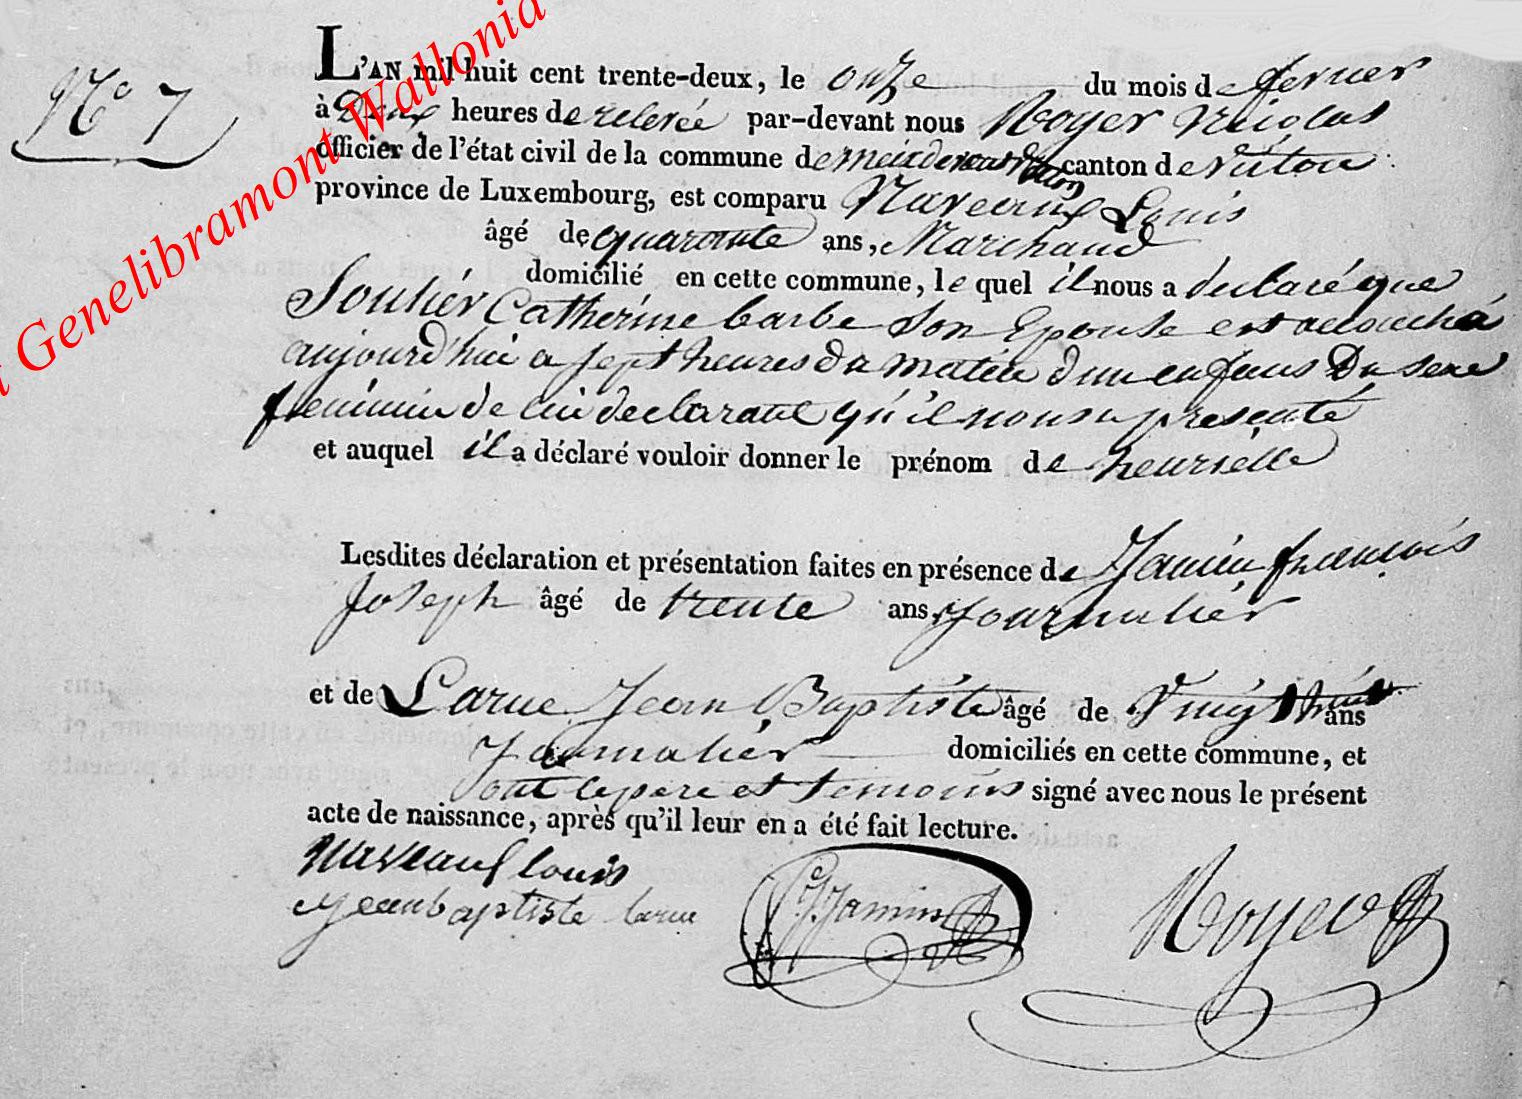 Genelibramont Wallonia
N° 7
L'AN mil huit cent trente-deux, le onze du mois de fevrier
à Deux heures de relevée par-devant nous Noyer Nicolas
officier de l'état civil de la commune de meix devant Virton canton de Virton
province de Luxembourg, est comparu Naveaux Louis
âgé de quarante ans, Marchand
domicilié en cette commune, le quel il nous a declaré que
Soulier Catherine barbe son Epouse est accouchá
aujourd'hui a sept heures du matin d'un enfans Du sexe
feminin de lui declarant qu'il nous a presenté
et auquel il a déclaré vouloir donner le prénom de henriette
Lesdites déclaration et présentation faites en présence de Jamin francois
Joseph âgé de trente ans, Journalier
et de Larue Jean Baptiste âgé de Vingt huit ans
Journalier domiciliés en cette commune, et
ont le pere et temoins signé avec nous le présent
acte de naissance, après qu'il leur en a été fait lecture.
naveaux louis
jean baptiste larue
Jamin
Noyer